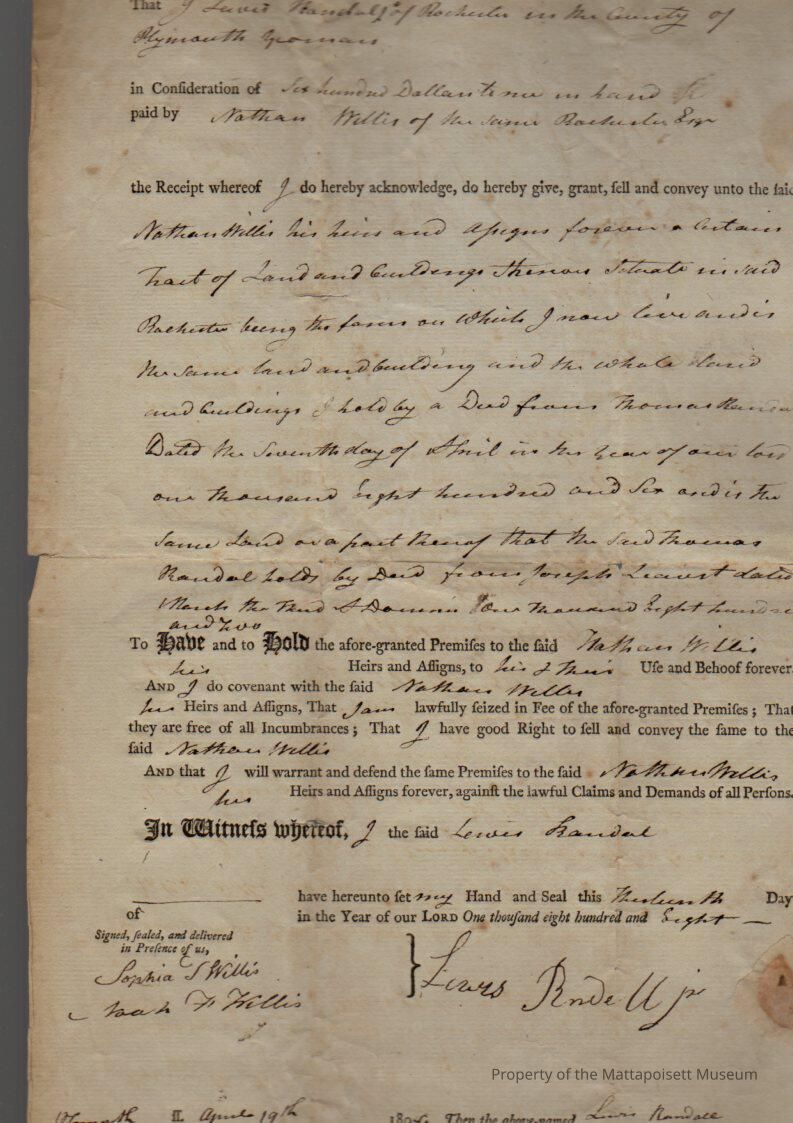 That I Lewis Randal Jr of Rochester in the County of
Plymouth Yeoman
in Conſideration of Six hundred Dollars to me in hand
paid by Nathan Willis of the same Rochester Esqr
the Receipt whereof I do hereby acknowledge, do hereby give, grant, ſell and convey unto the ſaid
Nathan Willis his heirs and aſsigns forever a certain
tract of Land and buildings thereon Situate in said
Rochester being the farm on which I now live and is
the same land and building and the whole land
and buildings I hold by a Deed from Thomas Randa
Dated the Seventh day of April in the year of our lord
one thousand Eight hundred and Six and is the
same Land or a part thereof that the said Thomas
Randal holds by Deed from Joseph dated
March the third A Domini One thousand Eight hundre
and two
To Have and to Hold the afore-granted Premiſes to the ſaid Nathan Willis
his Heirs and Aſſigns, to his & their Uſe and Behoof forever.
AND I do covenant with the ſaid Nathan Willis
his Heirs and Aſſigns, That I am lawfully ſeized in Fee of the afore-granted Premiſes; That
they are free of all Incumbrances; That I have good Right to ſell and convey the ſame to the
ſaid Nathan Willis
AND that I will warrant and defend the ſame Premiſes to the ſaid Nathan Willis
his Heirs and Aſſigns forever, againſt the lawful Claims and Demands of all Perſons.
In Witneſs whereof, I the ſaid Lewis Randal
have hereunto ſet my Hand and Seal this Day
of in the Year of our LORD One thouſand eight hundred and Eight
Signed, ſealed, and delivered
in Preſence of us,
Sophia S Willis
Noah F Willis
Lewis Rndell jr
Property of the Mattapoisett Museum
Plymouth ſſ. April 19th 180 Then the above-named Lewis Randall